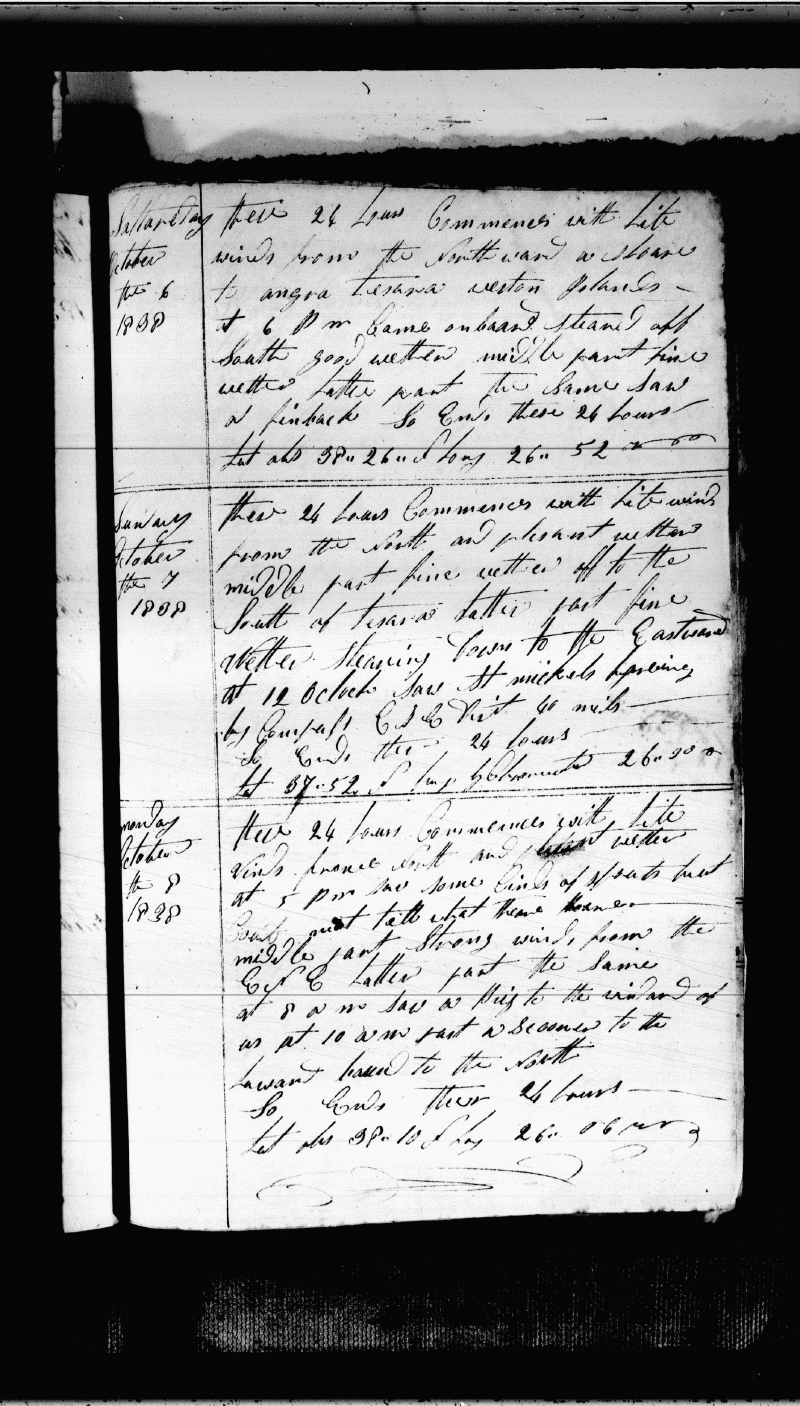 Satturday
October
the 6
1838
these 24 hours Commences with lite
winds from the Northward a shoare
to angra tesara weston Islands
at 6 P m Came onboard steared off
South good wether middle part fine
wether latter part the Same Saw
a finback So Ends these 24 hours
Lat obs 38" 26" N Long 26" 52
Sunday
October
the 7
1838
these 24 hours Commences with lite winds
from the North and plesant wether
middle part fine wether off to the
South of tesara latter part fine
Wether Stearing down to the Eastward
at 12 Oclock Saw St mickels
by Compass E S E Dist 40 mils
So Ends these 24 hours
Lat 37"52 N Long by Chronomiter 26"
monday
October
the 8
1838
these 24 hours Commences with lite
Winds from North and plesant wether
at 5 P m saw some kinds of spouts but
Could not tell what
middle part Strong winds from the
E N E latter part the Same
at 8 a m Saw a Brig to the windard of
us at 10 a m past a Scooner to the
Laward bound to the North
So Ends these 24 hours
Lat obs 38" 10 N Long 26" 06